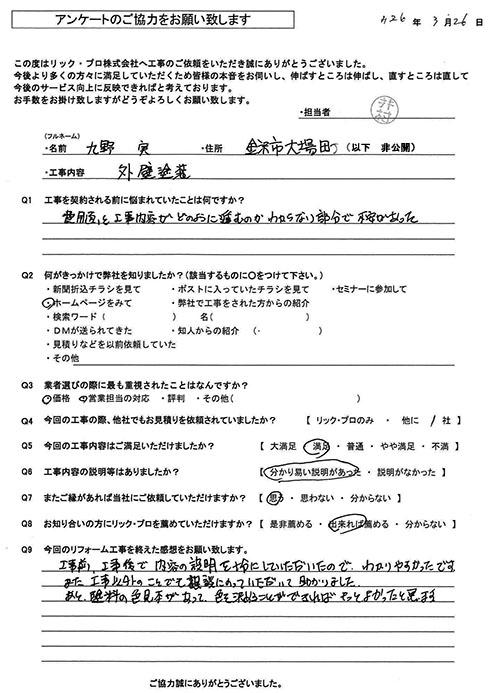 アンケートのご協力をお願い致します
H26年3月26日
この度はリック・プロ株式会社へ工事のご依頼をいただき誠にありがとうございました。
今後より多くの方々に満足していただくため皆様の本音をお伺いし、伸ばすところは伸ばし、直すところは直して
今後のサービス向上に反映できればと考えております。
お手数をお掛け致しますがどうぞよろしくお願い致します。
・担当者
(フルネーム)
・名前 九野 実 ・住所 金沢市大場町 (以下 非公開)
・工事内容 外壁塗装
Q1 工事を契約される前に悩まれていたことは何ですか?
費用、工事内容がどのように進むのかわからない部分で不安があった
Q2 何がきっかけで弊社を知りましたか?(該当するものに○をつけて下さい。)
・新聞折込チラシを見て ・ポストに入っていたチラシを見て ・セミナーに参加して
・ホームページをみて ・弊社で工事をされた方からの紹介
・検索ワード( ) 名( )
・DMが送られてきた ・知人からの紹介 (・ )
・見積りなどを以前依頼していた
・その他
Q3 業者選びの際に最も重視されたことはなんですか?
・価格 ・営業担当の対応 ・評判 ・その他( )
Q4 今回の工事の際、他社でもお見積りを依頼されていましたか? 【 リック・プロのみ ・ 他に 1 社 】
Q5 今回の工事内容はご満足いただけましたか? 【 大満足 ・ 満足 ・ 普通 ・ やや満足 ・ 不満 】
Q6 工事内容の説明等はありましたか? 【 分かり易い説明があった ・ 説明がなかった 】
Q7 またご縁があれば当社にご依頼していただけますか? 【 思う ・ 思わない ・ 分からない 】
Q8 お知り合いの方にリック・プロを薦めていただけますか? 【 是非薦める ・ 出来れば薦める ・ 分からない 】
Q9 今回のリフォーム工事を終えた感想をお願い致します。
工事前、工事後で内容の説明を十分にしていただいたので、わかりやすかったです
また工事以外のことでも相談にのっていただいて助かりました。
あと、塗料の色見本があって、色を決めることができればもっとよかったと思います
ご協力誠にありがとうございました。